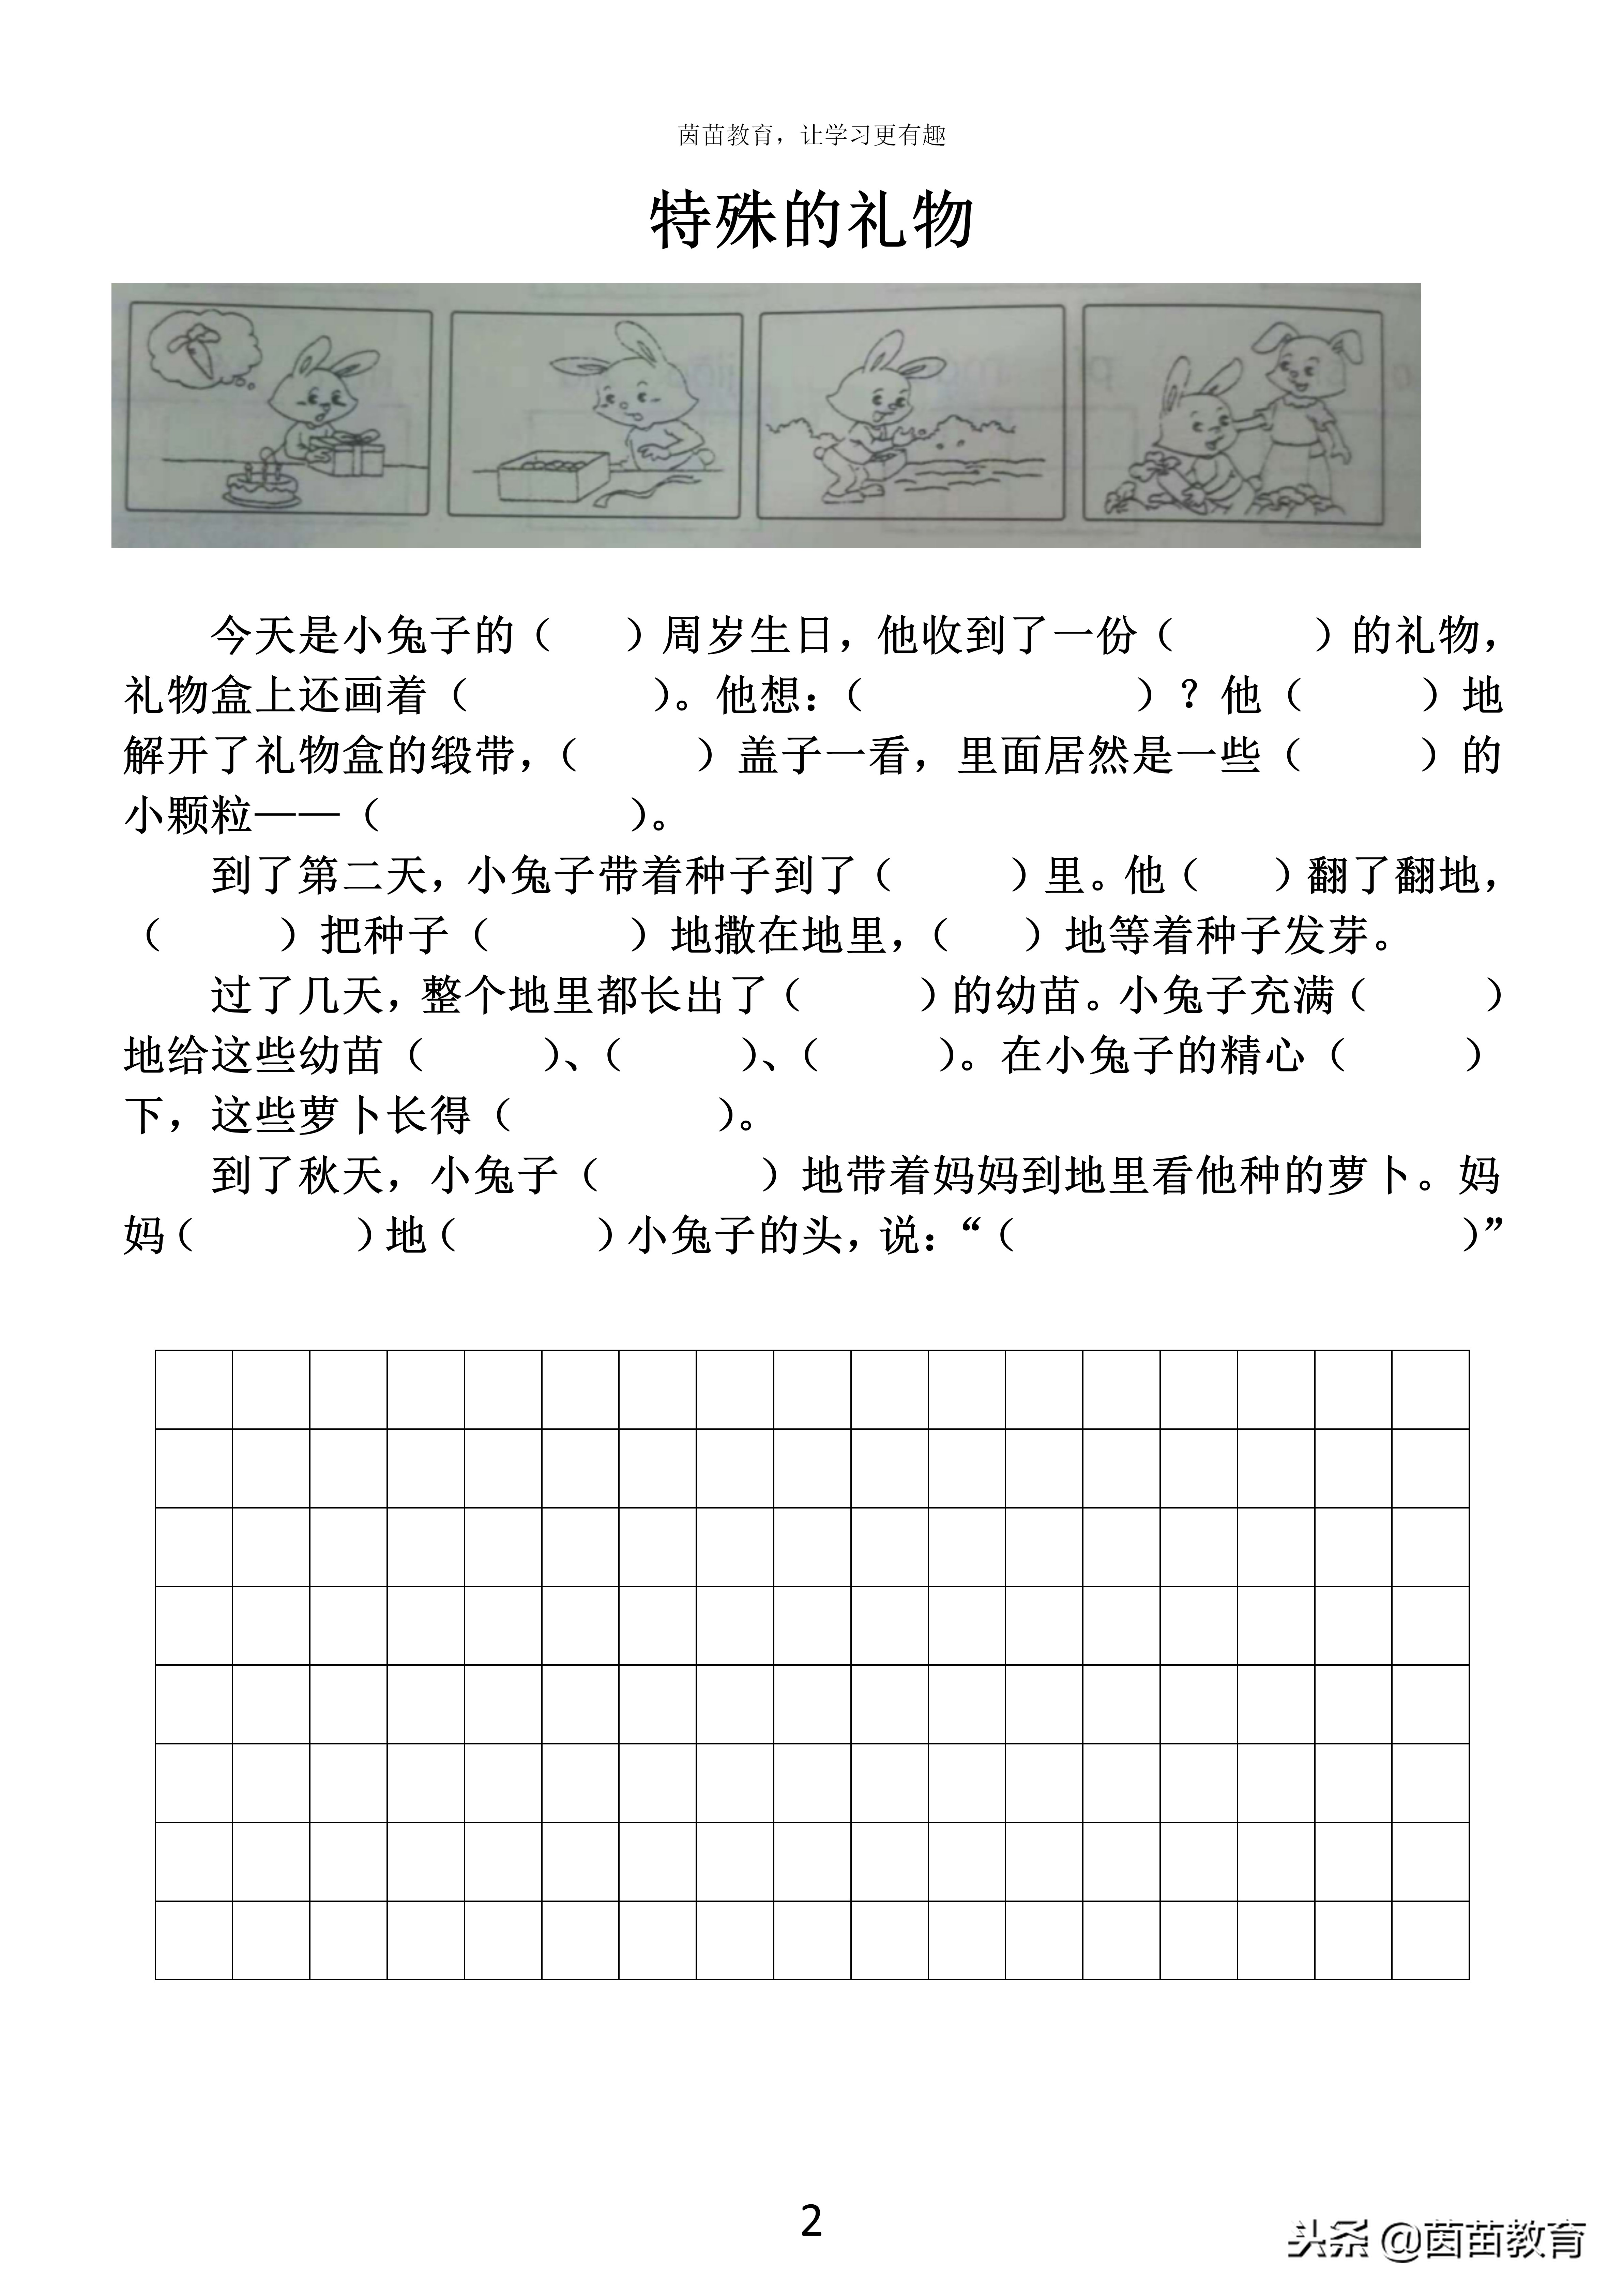 茵苗教育，让学习更有趣
特殊的礼物
今天是小兔子的（　）周岁生日，他收到了一份（　　　）的礼物，
礼物盒上还画着（　　　　）。他想：（　　　　　　）？他（　　）地
解开了礼物盒的缎带，（　　）盖子一看，里面居然是一些（　　）的
小颗粒——（　　　　　）。
到了第二天，小兔子带着种子到了（　　）里。他（　）翻了翻地，
（　　）把种子（　　　）地撒在地里，（　）地等着种子发芽。
过了几天，整个地里都长出了（　　）的幼苗。小兔子充满（　　）
地给这些幼苗（　　）、（　　）、（　　）。在小兔子的精心（　　）
下，这些萝卜长得（　　　　）。
到了秋天，小兔子（　　　）地带着妈妈到地里看他种的萝卜。妈
妈（　　　）地（　　　）小兔子的头，说：“（　　　　　　　　　　）”
2
头条 @茵苗教育